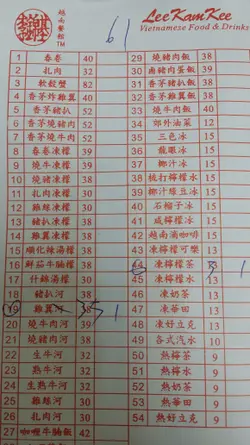 越南餐館
TM
LeeKamKee
Vietnamese Food & Drinks
61
1 春卷 40
2 扎肉 32
3 軟殼蟹 82
4 香茅炸雞翼 40
5 香茅燒豬肉 52
6 香茅豬扒 52
7 香茅燒牛肉 52
8 春卷凍檬 39
9 燒牛凍檬 39
10 燒豬凍檬 39
11 扎肉凍檬 30
12 雞絲凍檬 30
13 豬扒凍檬 38
14 雞翼凍檬 38
15 順化辣湯檬 38
16 鮮茄牛腩檬 38
17 什錦湯檬 30
18 豬扒河 38
19 雞翼 35 1
20 燒牛肉河 39
21 燒豬肉河 38
22 生牛河 32
23 熟牛河 32
24 生熟牛河 32
25 雞絲河 30
26 扎肉河 30
27 咖喱牛腩飯 42
29 燒豬肉飯 38
30 鹵豬肉蛋飯 39
31 香茅豬扒飯 39
32 香茅雞翼飯 38
33 燒牛肉飯 40
34 郊外油菜 12
35 三色冰 15
36 龍眼冰 15
37 椰汁冰 15
38 梳打檸檬水 15
39 椰汁綠豆冰 15
40 石榴子冰 15
41 咸檸檬冰 15
42 越南滴咖啡 15
43 凍檸檬可樂 13
44 凍檸檬茶 1
45 凍檸檬水 13
46 凍奶茶 13
47 凍華田 13
48 凍好立克 13
49 各式汽水 10
50 熱檸茶 9
51 熱檸水 9
52 熱奶茶 9
53 熱華田 9
54 熱好立克 9